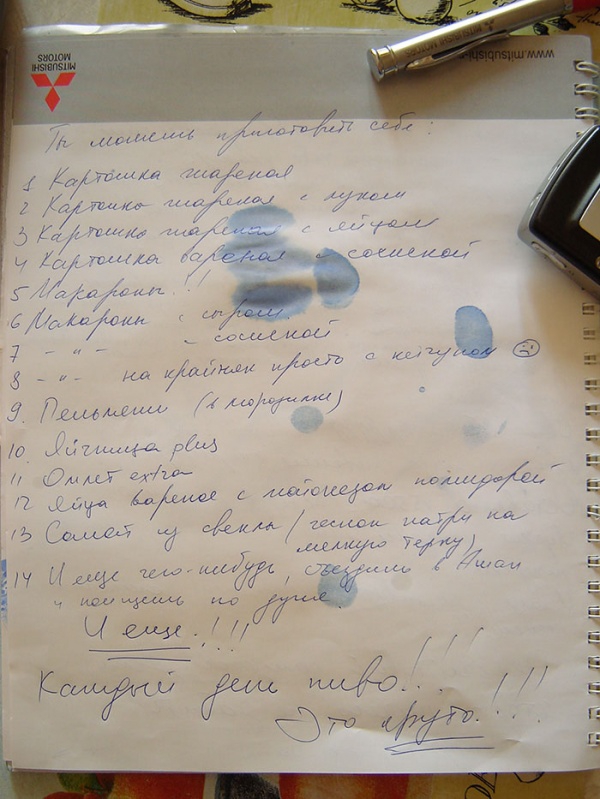 MITSUBISHI
MOTORS
www.mitsubishi-
MITSUBISHI MOTORS
Ты можешь приготовить себе:
1 Картошка жареная
2 Картошка жареная с луком
3 Картошка жареная с яйцом
4 Картошка вареная с сосиской
5 Макароны!!
6 Макароны с сыром
7 -"- с сосиской
8 -"- на крайняк просто с кетчупом ☹
9. Пельмени (в морозилке)
10. Яичница plus
11 Омлет extra
12 Яйца вареное с майонезом помидорой
13 Салат из свеклы (чеснок натри на
мелкую терку)
14 И еще чего-нибудь, съездишь в Ашан
и поищешь по душе.
И еще!!!!
Каждый день пиво!...!!!
Это круто!!!!